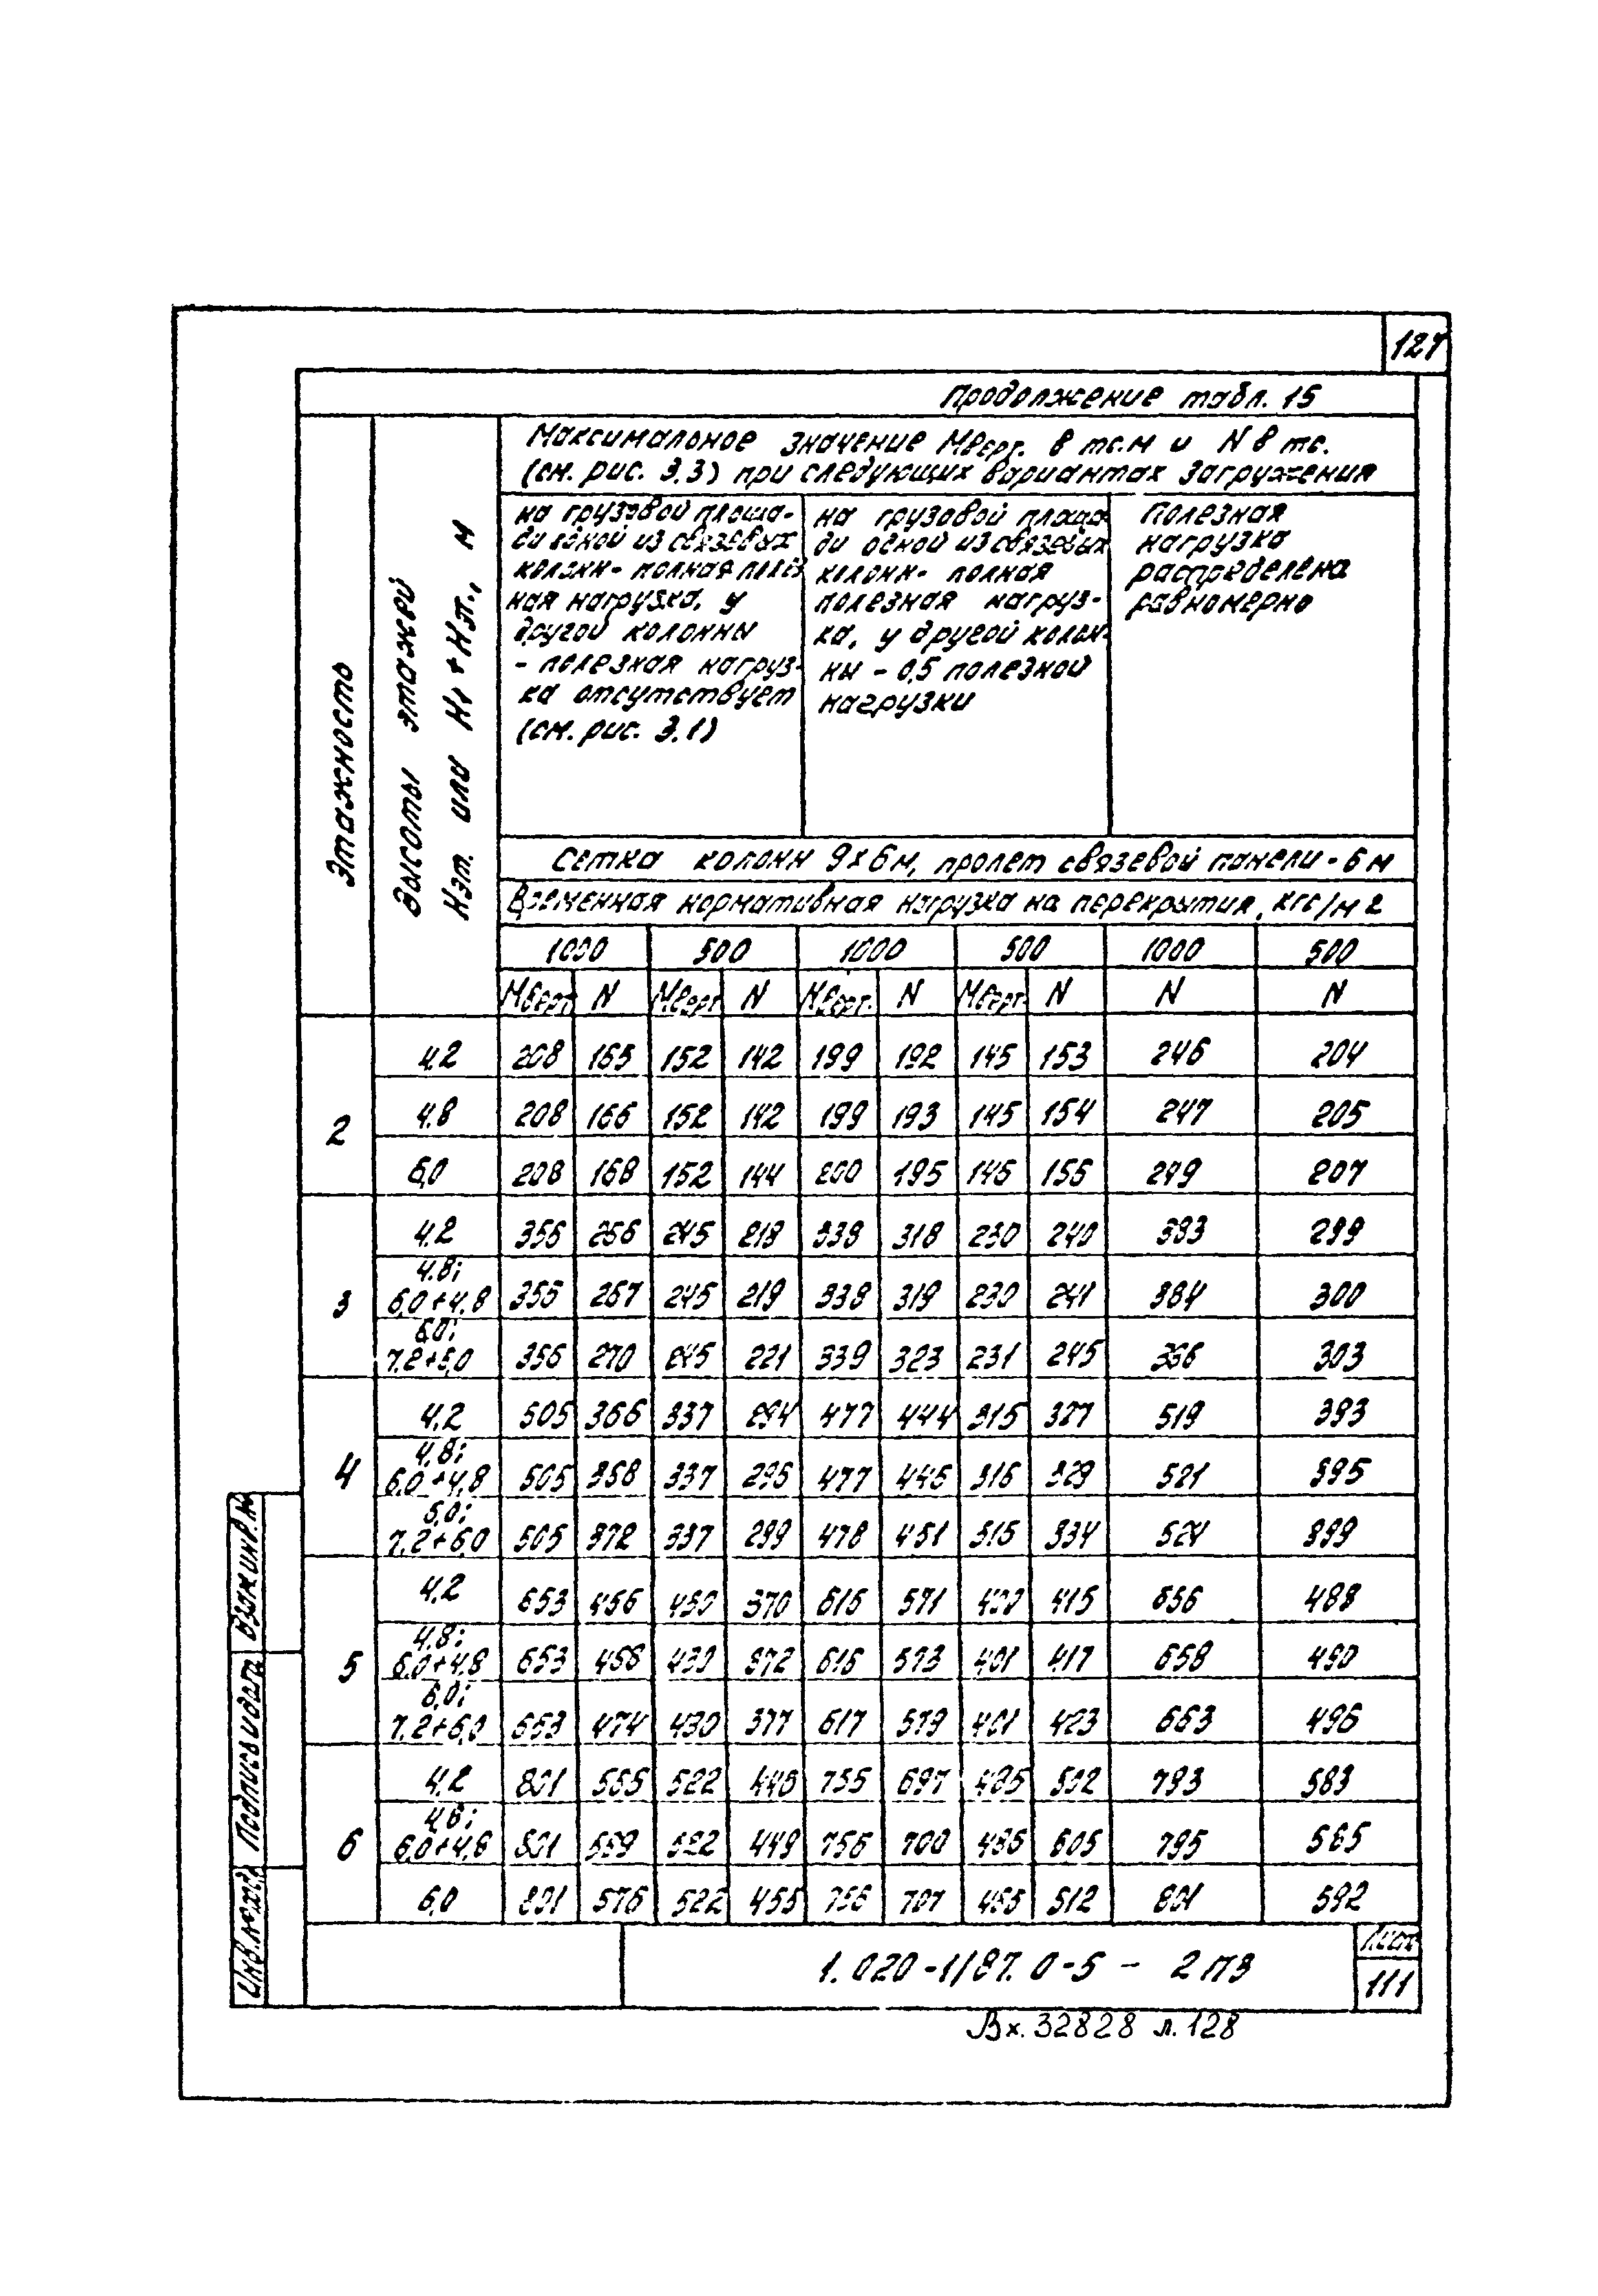 127
Продолжение табл. 15
Этажность
Высоты этажей
Нэт. или Н1 + Нэт., м
Максимальное значение Мверт. в тс.м и N в тс.
(см. рис. 3.3) при следующих вариантах загружения
на грузовой площа-
ди одной из связевых
колонн- полная полез
ная нагрузка, у
другой колонны
- полезная нагруз-
ка отсутствует
(см. рис. 3.1)
на грузовой площа-
ди одной из связевых
колонн- полная
полезная нагруз-
ка, у другой колон-
ны - 0,5 полезной
нагрузки
Полезная
нагрузка
распределена
равномерно
Сетка колонн 9х6м, пролет связевой панели - 6 м
Временная нормативная нагрузка на перекрытия, кгс/м2
1000 500 1000 500 1000 500
Мверт N Мверт N Мверт. N Мверт. N N N
2
4,2 208 165 152 142 199 192 145 153 246 204
4.8 208 166 152 142 199 193 145 154 247 205
6,0 208 168 152 144 200 195 145 156 249 207
3
4.2 356 266 245 218 338 318 230 240 383 299
4.8;
6,0+4,8 356 267 245 219 338 319 230 241 384 300
6,0;
7.2+6,0 356 270 245 221 339 323 231 245 303
4
4,2 505 366 337 294 477 444 315 327 519 393
4,8;
6,0+4,8 505 368 337 477 446 329 521 395
6,0;
7,2+6,0 505 372 337 299 478 451 334 524 399
5
4,2 653 466 430 370 616 571 415 656 488
4,8;
6,0+4,8 653 468 430 372 616 573 401 417 658 490
6,0;
7,2+6,0 653 474 430 377 617 579 401 423 663 496
6
4,2 801 565 522 446 755 697 485 502 793 583
4,8;
6,0+4,8 801 569 522 449 756 700 505 795
6,0 801 576 522 455 756 707 512 801 592
1. 020-1/87. 0-5 - 2ПЗ
Лист
111
Взам.инв.№
Подпись и дата
Инв.№ подл
Вх. 32828 л. 128